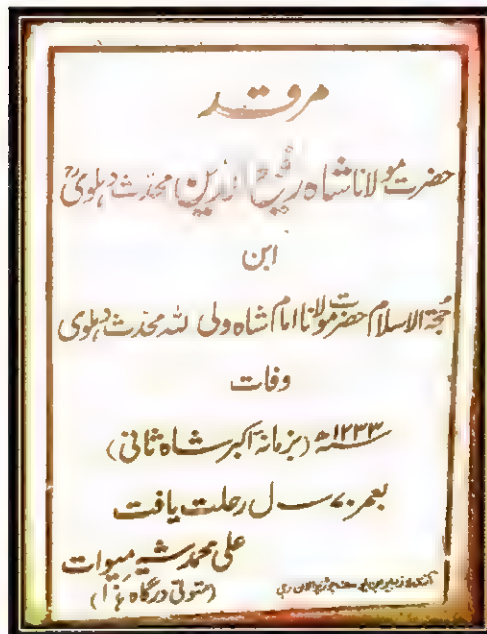 مرقد
حضرت مولانا شاہ رفیع الدین محدث دہلویؒ
ابن
حجۃ الاسلام حضرت مولانا امام شاہ ولی اللہ محدث دہلوی
وفات
۱۲۳۳ھ (بزمانہ اکبر شاہ ثانی)
بعمر ۷۰ سال رحلت یافت
علی محمد شیر میوات
(متولی درگاہ ہٰذا)